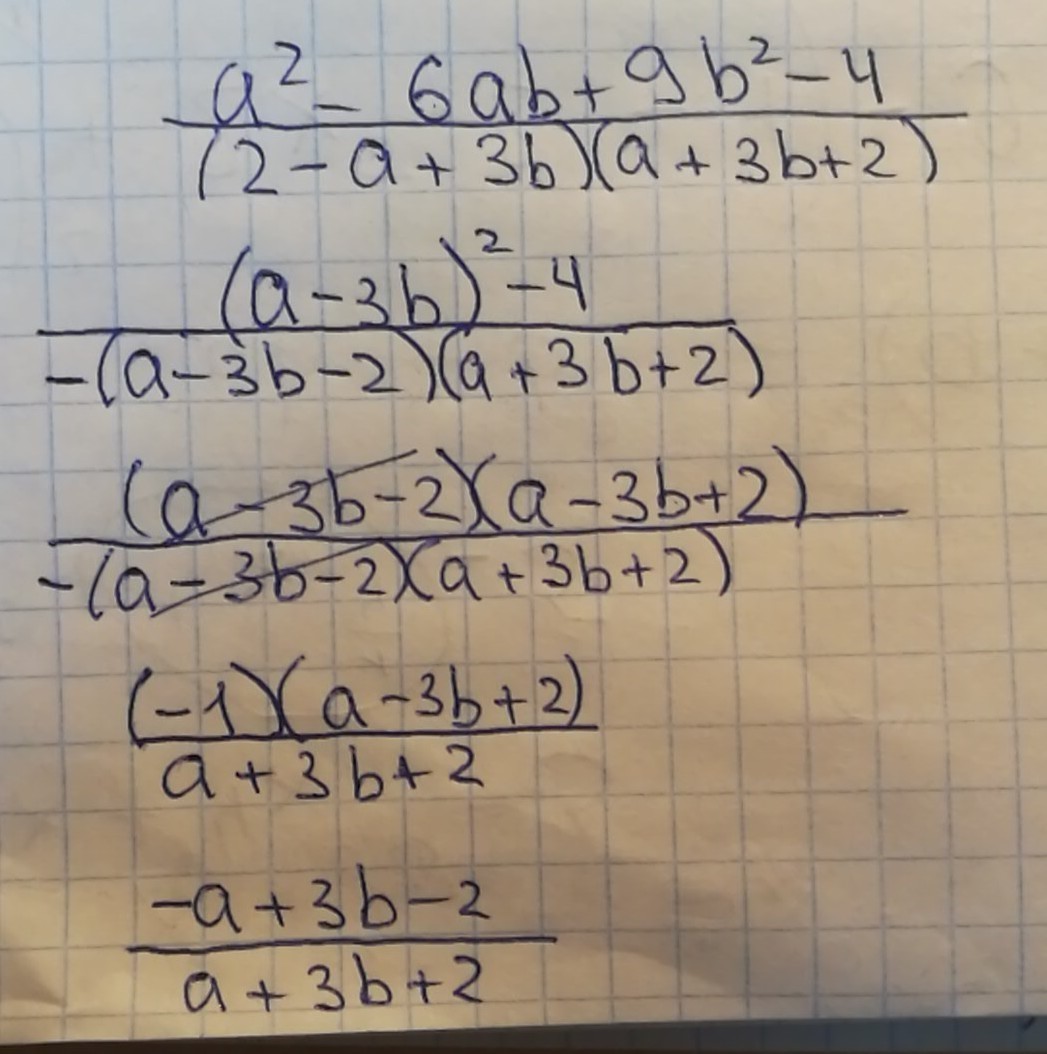 a² - 6ab + 9b² - 4
(2 - a + 3b)(a + 3b + 2)
(a - 3b)² - 4
-(a - 3b - 2)(a + 3b + 2)
(a - 3b - 2)(a - 3b + 2)
-(a - 3b - 2)(a + 3b + 2)
(-1)(a - 3b + 2)
a + 3b + 2
-a + 3b - 2
a + 3b + 2